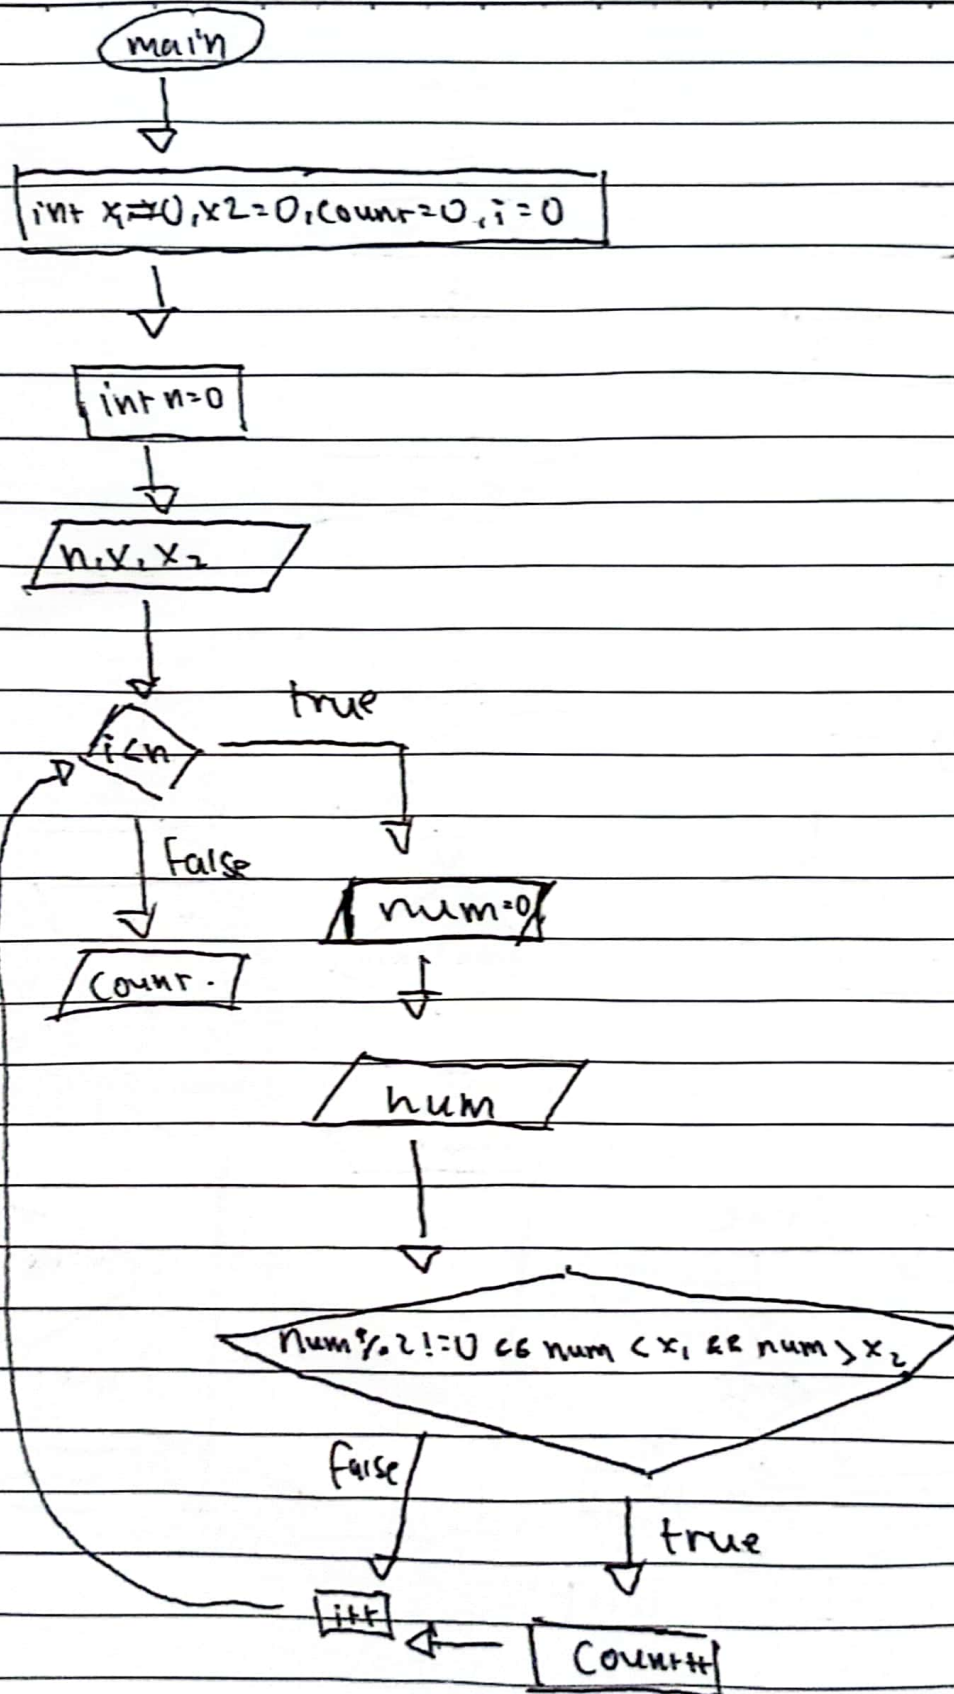 main
int x1=0, x2=0, count=0, i=0
int n=0
n, x1 x2
i<n
true
False
num=0
count.
num
num%2!=0 && num < x1 && num > x2
False
true
i++
Count++